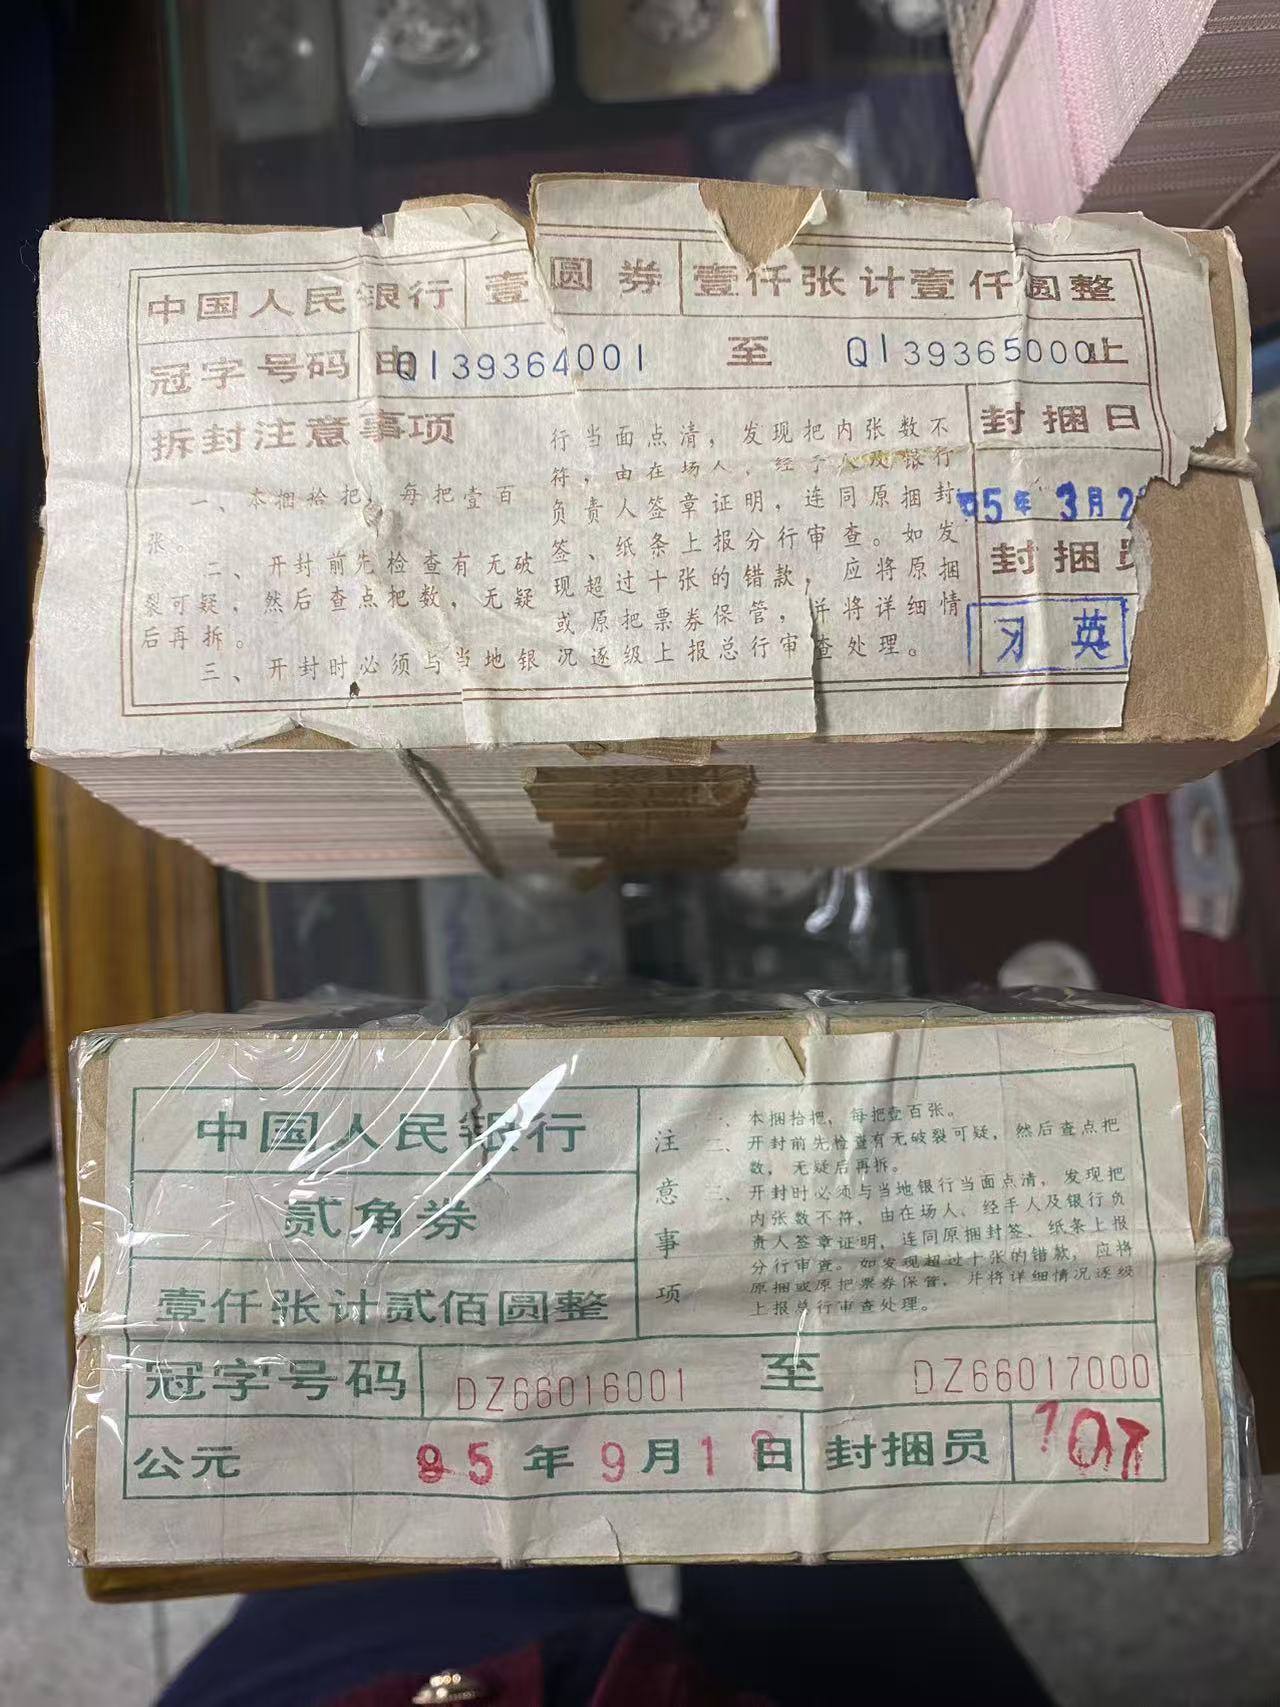 中国人民银行 壹圆券 壹仟张计壹仟圆整
冠字号码 由 QI39364001 至 QI39365000止
拆封注意事项
一、本捆拾把，每把壹百
张。
二、开封前先检查有无破
裂可疑，然后查点把数，无疑
后再拆。
三、开封时必须与当地银
行当面点清，发现把内张数不
符，由在场人、经手人及银行
负责人签章证明，连同原捆封
签、纸条上报分行审查。如发
现超过十张的错款，应将原捆
或原把票券保管，并将详细情
况逐级上报总行审查处理。
封捆日
5年 3月2
封捆员
英
中国人民银行
贰角券
壹仟张计贰佰圆整
注意事项
一、本捆拾把，每把壹百张。
二、开封前先检查有无破裂可疑，然后查点把
数，无疑后再拆。
三、开封时必须与当地银行当面点清，发现把
内张数不符，由在场人、经手人及银行负
责人签章证明，连同原捆封签、纸条上报
分行审查。如发现超过十张的错款，应将
原捆或原把票券保管，并将详细情况逐级
上报总行审查处理。
冠字号码 DZ66016001 至 DZ66017000
公元 95年9月1日 封捆员 107